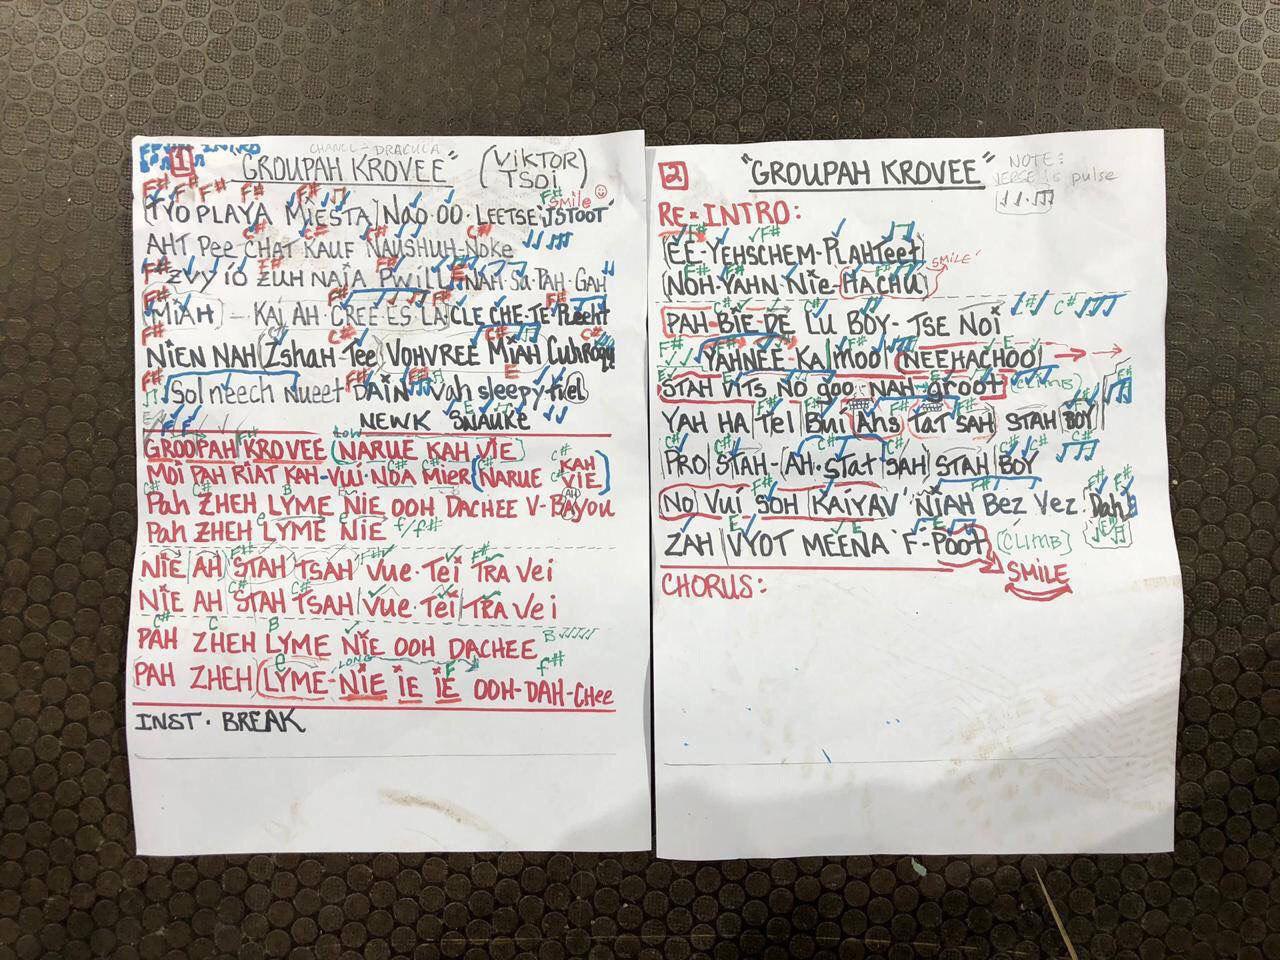 1 "GROUPAH KROVEE" (VIKTOR TSOI)
CHANEL - DRACULA
F# F# F# F# F#
SMILE
TYO PLAYA MIESTA NAO·OO·LEETSE
AHT Pee CHAT KAUF NAUSHUH-NOKE
ZVY IO ZUH NAIA PWILL NAH-Su-PAH-GAH
MIAH) - KAI AH-CREE ES LA CLE CHE-TE
NIEN NAH (ZshaH Tee (VOHVREE MIAH
Sol neech Nueet DAIN Vah sleepy tiel
NEWK SNAUKE
GROOPAH KROVEE (NARUE KAH VIE
LOW
MOI PAH RIAT KAH-VUI-NOA MIER (NARUE KAH VIE)
Pah ZHEH LYME NIE OOH DACHEE V-BAYOU
AH
Pah ZHEH LYME NIE f/f#
NIE AH STAH TSAH VUE·TEI TRA VEI
NIE AH STAH TSAH VUE·TEI TRA VEI
C# C B
PAH ZHEH LYME NIE OOH DACHEE B
e LONG F f#
PAH ZHEH (LYME-NIE IE IE OOH-DAH-CHee
INST. BREAK
2 "GROUPAH KROVEE"
NOTE:
VERSE is pulse
RE-INTRO:
EE-YEHSCHEM-PLAHTeet
NOH-YAHN-NIE-HACHU SMILE
PAH-BIE-DE LU BOY-TSE NOI
YAHNEE-KA MOO (NEEHACHOO)
STAH VITS NO goo NAH-groot (CLIMB)
YAH HA TEL BUI AHS TAT SAH STAH BOY
PRO STAH-AH-STAT SAH STAH BOY
NO VUI SOH KAIYAV' NIAH Bez Vez Dah
ZAH VYOT MEENA F-POOT (CLIMB)
SMILE
CHORUS: